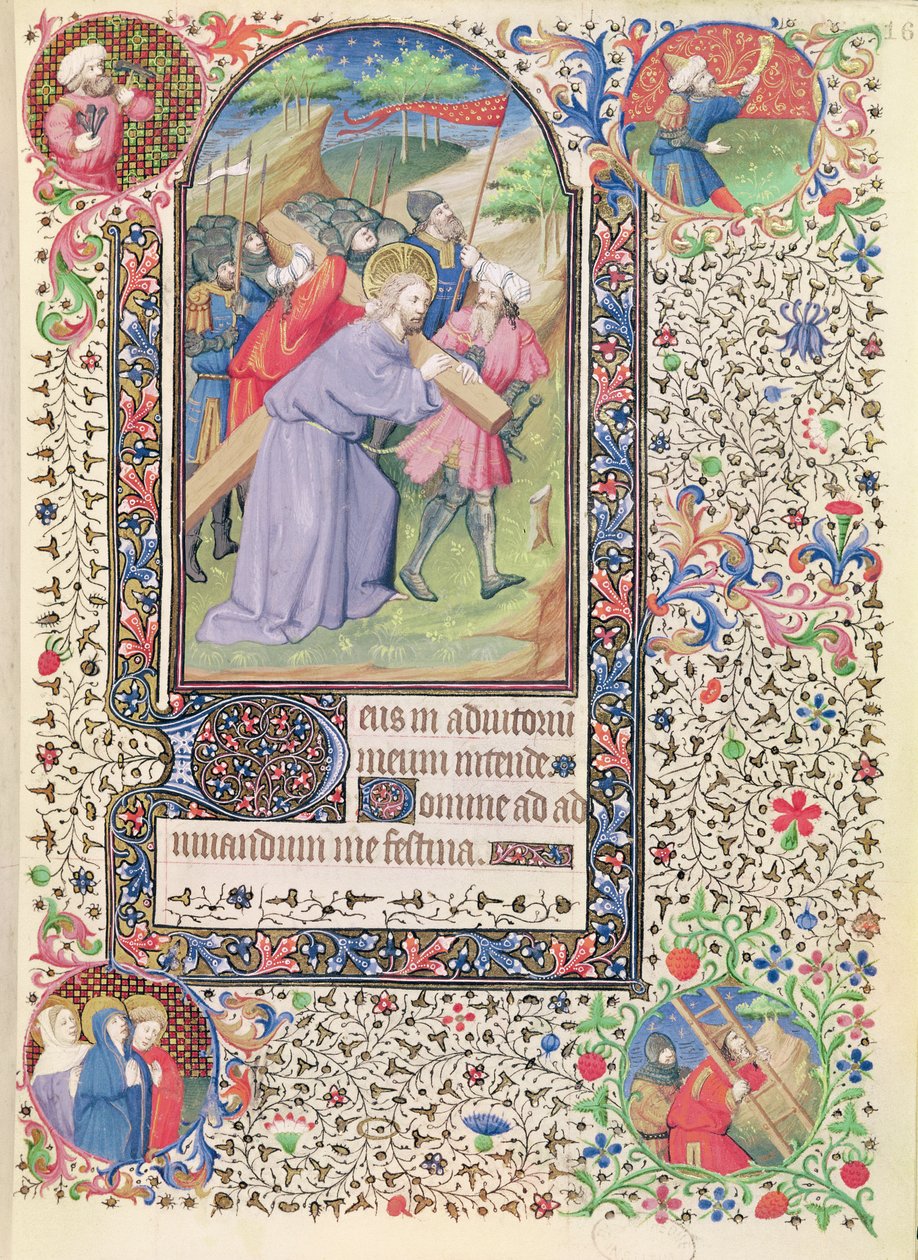 16
Deus in adiutoriū
meum intende.
Domine ad ad
iuuandum me festina.